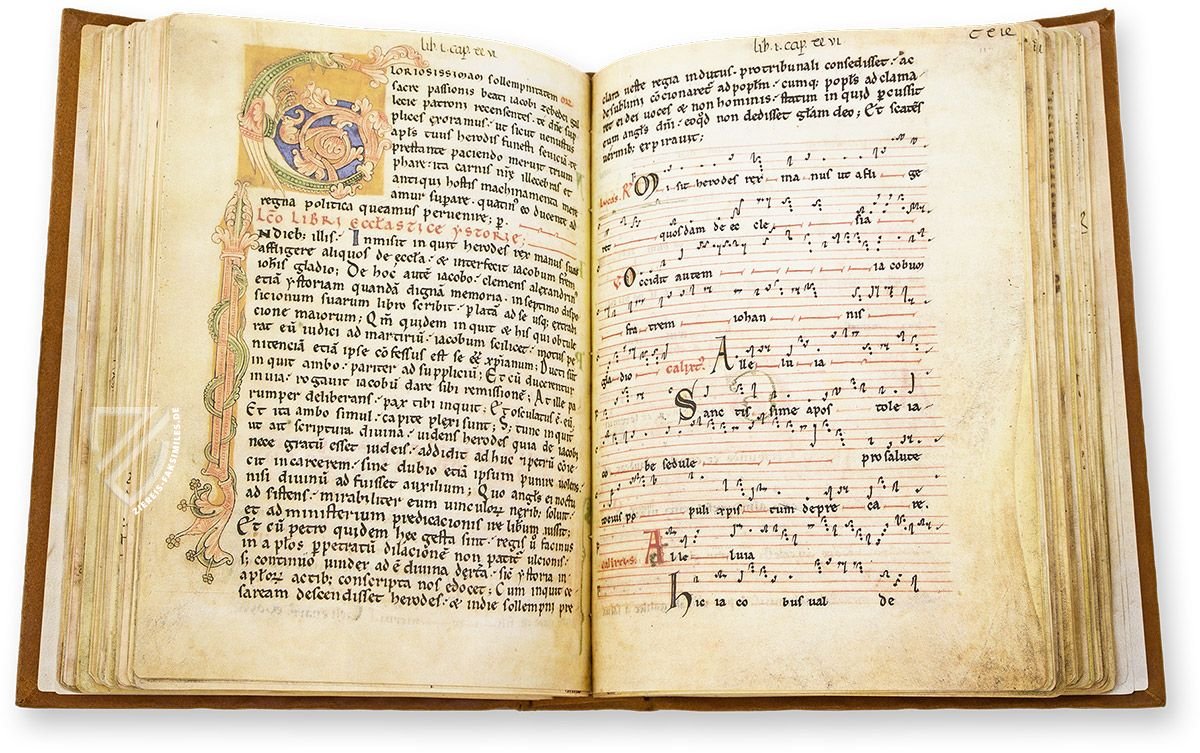 lib. i. cap. xxvi
GLORIOSISSIMAM sollempnitatem
sacre passionis beati iacobi zebedei gal
lecie patroni recensentes · te dñe sup
plices exoramus · ut sicut venustus
apls tuus herodis funesti seviciã te
prestante paciendo meruit trium
phare · ita carnis nr̃e illecebras et
antiqui hostis machinamenta mere
amur supare · quatin; eo ducente ad
regna politica queamus pervenire; p.
LCO LIBRI ECCLASTICE YSTORIE;
INdieb; illis · Inmisit inquit herodes rex manus suas
affligere aliquos de eccl̃a · & interfecit iacobum frẽm
iohis gladio; De hoc autẽ iacobo · clemens alexandrin;
etiã ystoriam quandã dignã memoria · inseptimo dispo
sicionum suarum libro scribit · platã ad se usq; ex
cione maiorum; Qm̃ quidem inquit & his qui obtule
rat eũ iudici ad martiriũ · iacobum scilicet · motus pe
nitenciã etiã ipse cõfessus est se & xpianum; Ducti sũt
inquit ambo · pariter ad suppliciũ; Et cũ ducerentur
inuia · rogavit iacobũ dare sibi remissionẽ; At ille pa
rumper deliberans · pax tibi inquit; Et osculatus ẽ eũ;
Et ita ambo simul · capite plexi sunt; S; tunc inquit
ut ait scriptura divina · videns herodes quia de iacobi
nece gratũ esset iudeis · addidit adhuc & petrũ cõie
cit incarcerem · sine dubio etiã ipsum punire volens
nisi divinũ adfuisset auxilium; Quo angls ei noctu
adsistens · mirabiliter eum vinculor̃ nexib; solvit ·
et administerium predicacionis ire libum iussit;
Et cũ petro quidem hec gesta sint · regis ũ facinus
in aplos perpetratũ dilacionẽ non patitr̃ ulcionis ·
s; continuo vindex adẽ divina dext̃a · sic̃ ystoria in
aplor̃ actib; conscripta nos edocet; Cum inquit ce
saream descendisset herodes · & indie sollempni pre
lib. i. cap. xxvi
clara veste regia indutus · protribunali consedisset · ac
desublimi cõcionaret adpoplm · cumq; popls adclama
ret ei dei voces & non hominis · statim inquid percussit
eum angls dñi · eoqd non dedisset glam deo; Et scatẽs
vermib; expiravit;
lucas. R. Misit herodes rex ma nus ut afli ge
ret quosdam de ec cle sia
Occidit autem ia cobum
fra trem iohan nis
gladio calixt; Alle lu ia
Sanc tis sime apos tole ia
co be sedule pro salute
totius po puli xpis tum depre ca re.
calixtus. Alle luia
Hic ia co bus val de